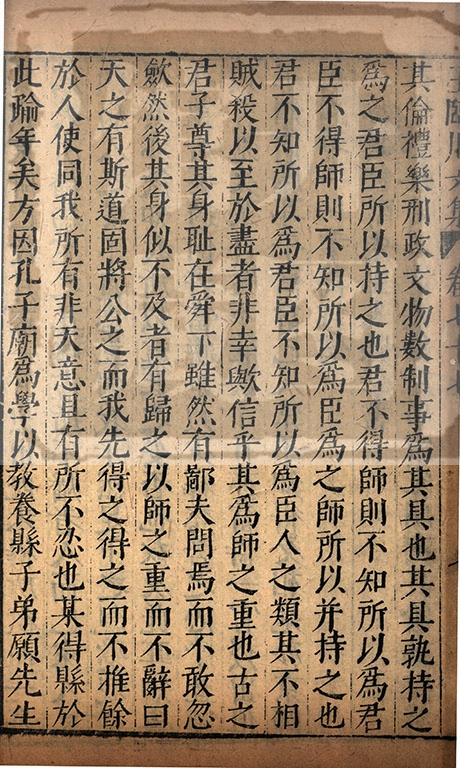 王臨川文集 卷七十七
其倫禮樂刑政文物數制事爲其具也其具孰持之
爲之君臣所以持之也君不得師則不知所以爲君
臣不得師則不知所以爲臣爲之師所以并持之也
君不知所以爲君臣不知所以爲臣人之類其不相
賊殺以至於盡者非幸歟信乎其爲師之重也古之
君子尊其身恥在舜下雖然有鄙夫問焉而不敢忽
歛然後其身似不及者有歸之以師之重而不辭曰
天之有斯道固將公之而我先得之得之而不推餘
於人使同我所有非天意且有所不忍也某得縣於
此踰年矣方因孔子廟爲學以教養縣子弟願先生